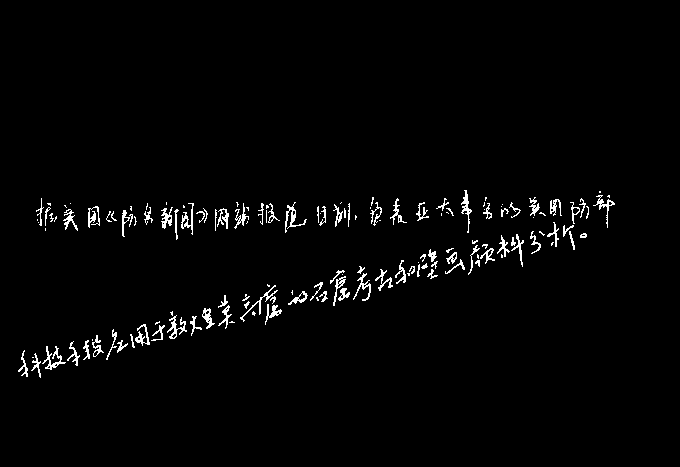 据美国《防务新闻》网站报道,日前,负责亚太事务的美国防部
科技手段应用于敦煌莫高窟的石窟考古和壁画颜料分析。